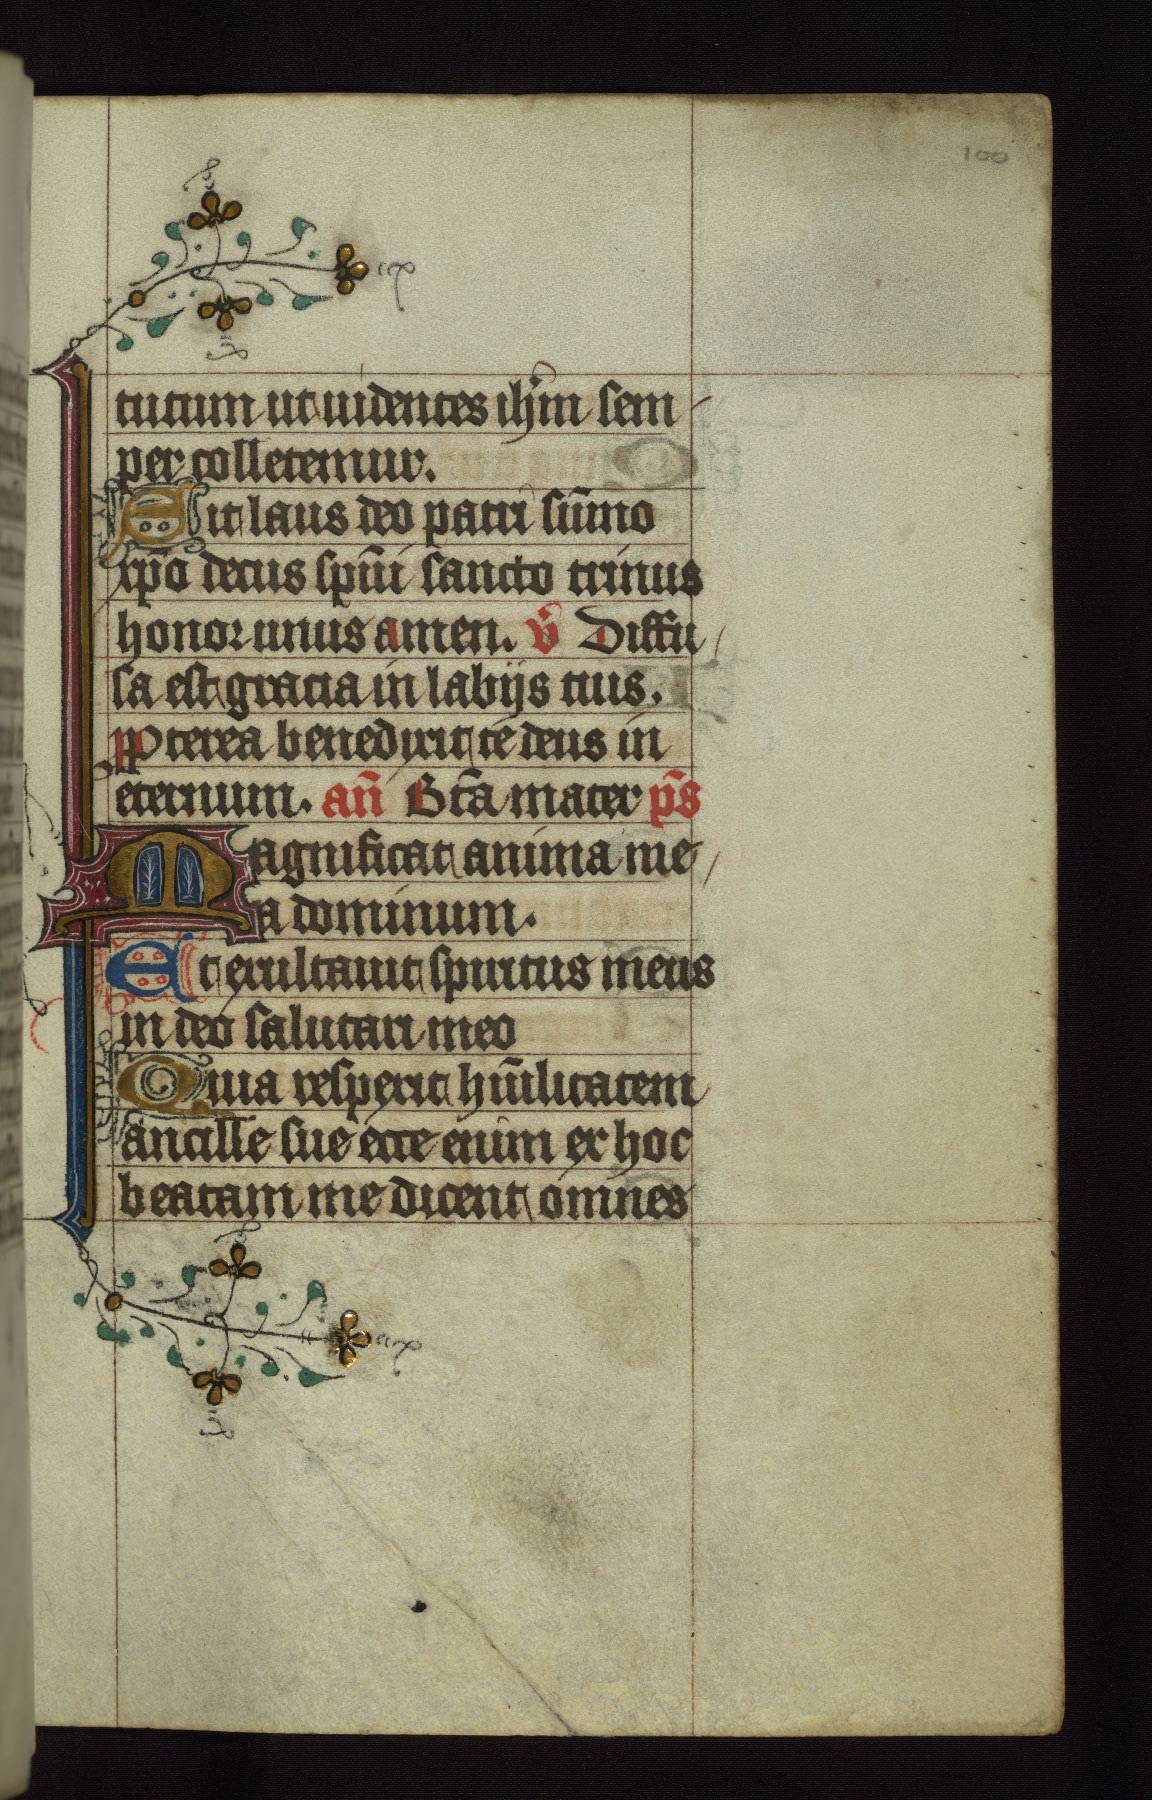 100
tutum ut uidentes ih̄m sem
per colletemur.
Sit laus deo patri su̅mo
xp̅o decus sp̅ui sancto trinus
honor unus amen. v̅ Diffu
sa est gracia in labijs tuis.
Pp̅terea benedixit te deus in
eternum. an̅ Bt̅a mater p̅s
Magnificat anima me
a dominum.
Et exultauit spiritus meus
in deo salutari meo
Quia respexit hu̅ilitatem
ancille sue ecce enim ex hoc
beatam me dicent omnes